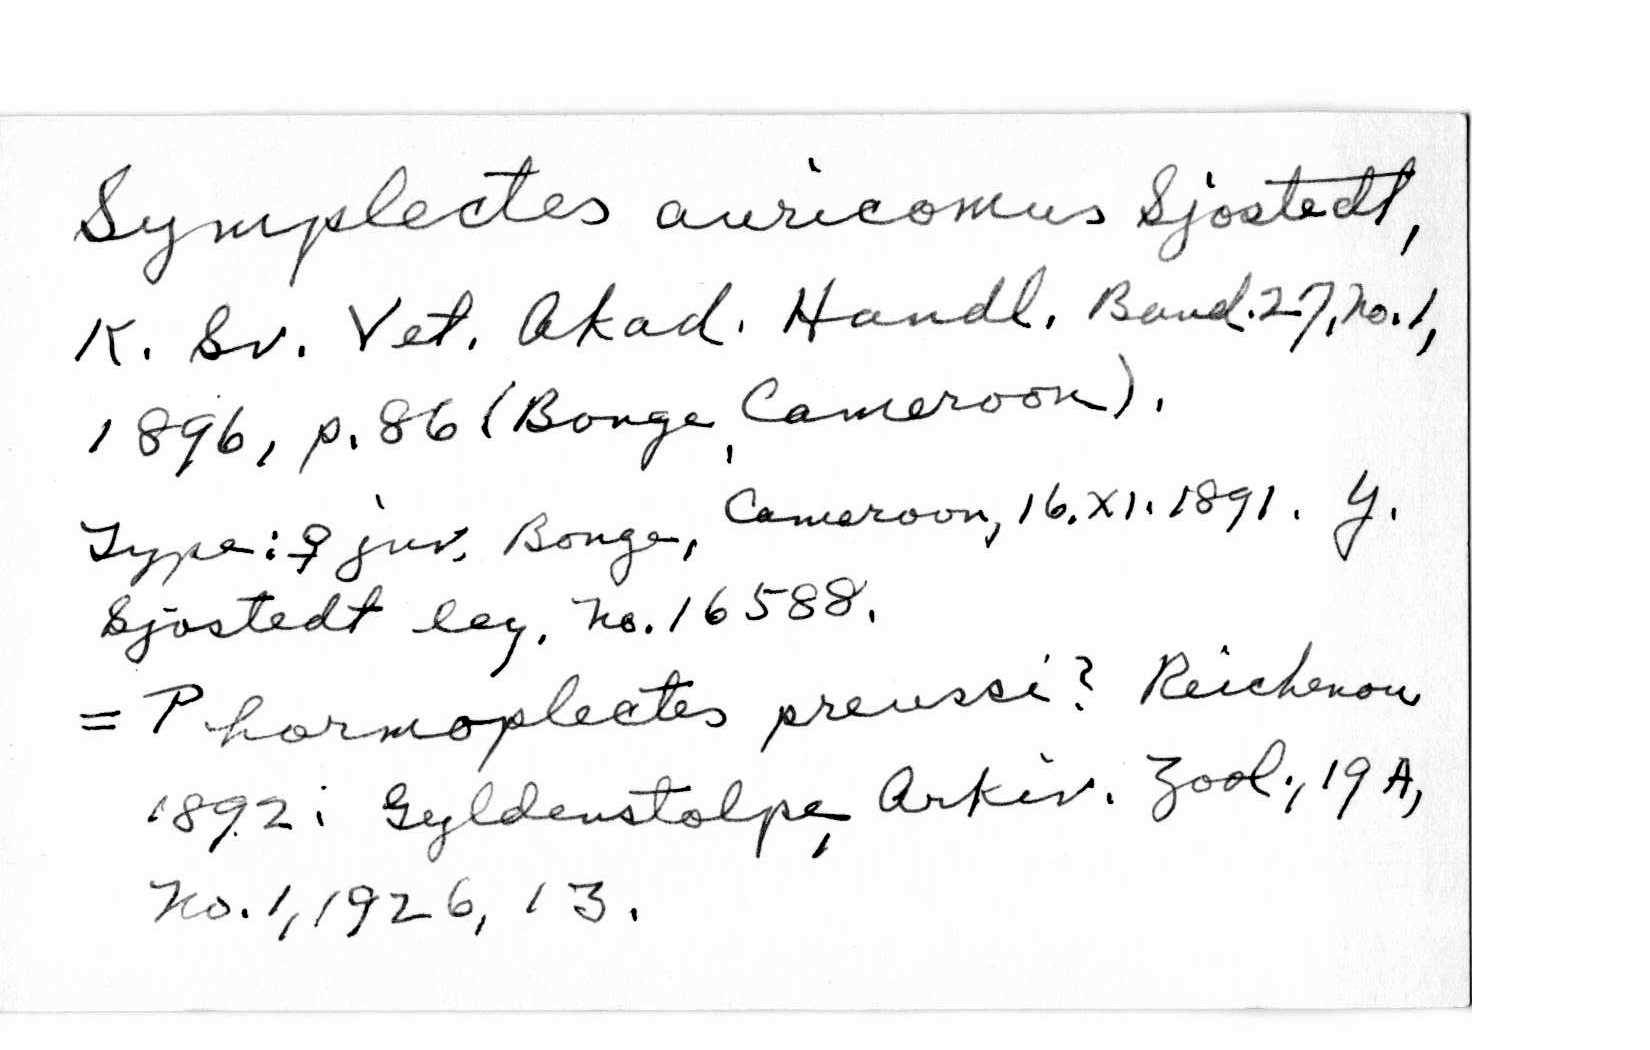 Symplectes auricomus Sjostedt,
K. Sv. Vet. Akad. Handl. Band.27, No.1,
1896, p.86 (Bonge, Cameroon).
Type: ♀ juv. Bonge, Cameroon, 16.XI.1891. Y.
Sjostedt leg. No.16588.
= Phormoplectes preussi? Reichenow
1892: Gyldenstolpe, Arkiv. Zool., 19A,
No.1, 1926, 13.